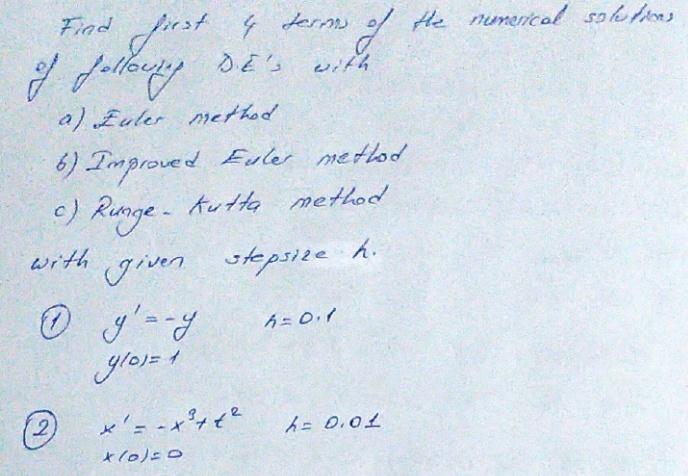 Find first 4 terms of the numerical solutions
of following DE's with
a) Euler method
b) Improved Euler method
c) Runge-Kutta method
with given stepsize h.
① y' = -y h=0.1
y(0)=1
② x' = -x³+t² h=0.01
x(0)=0